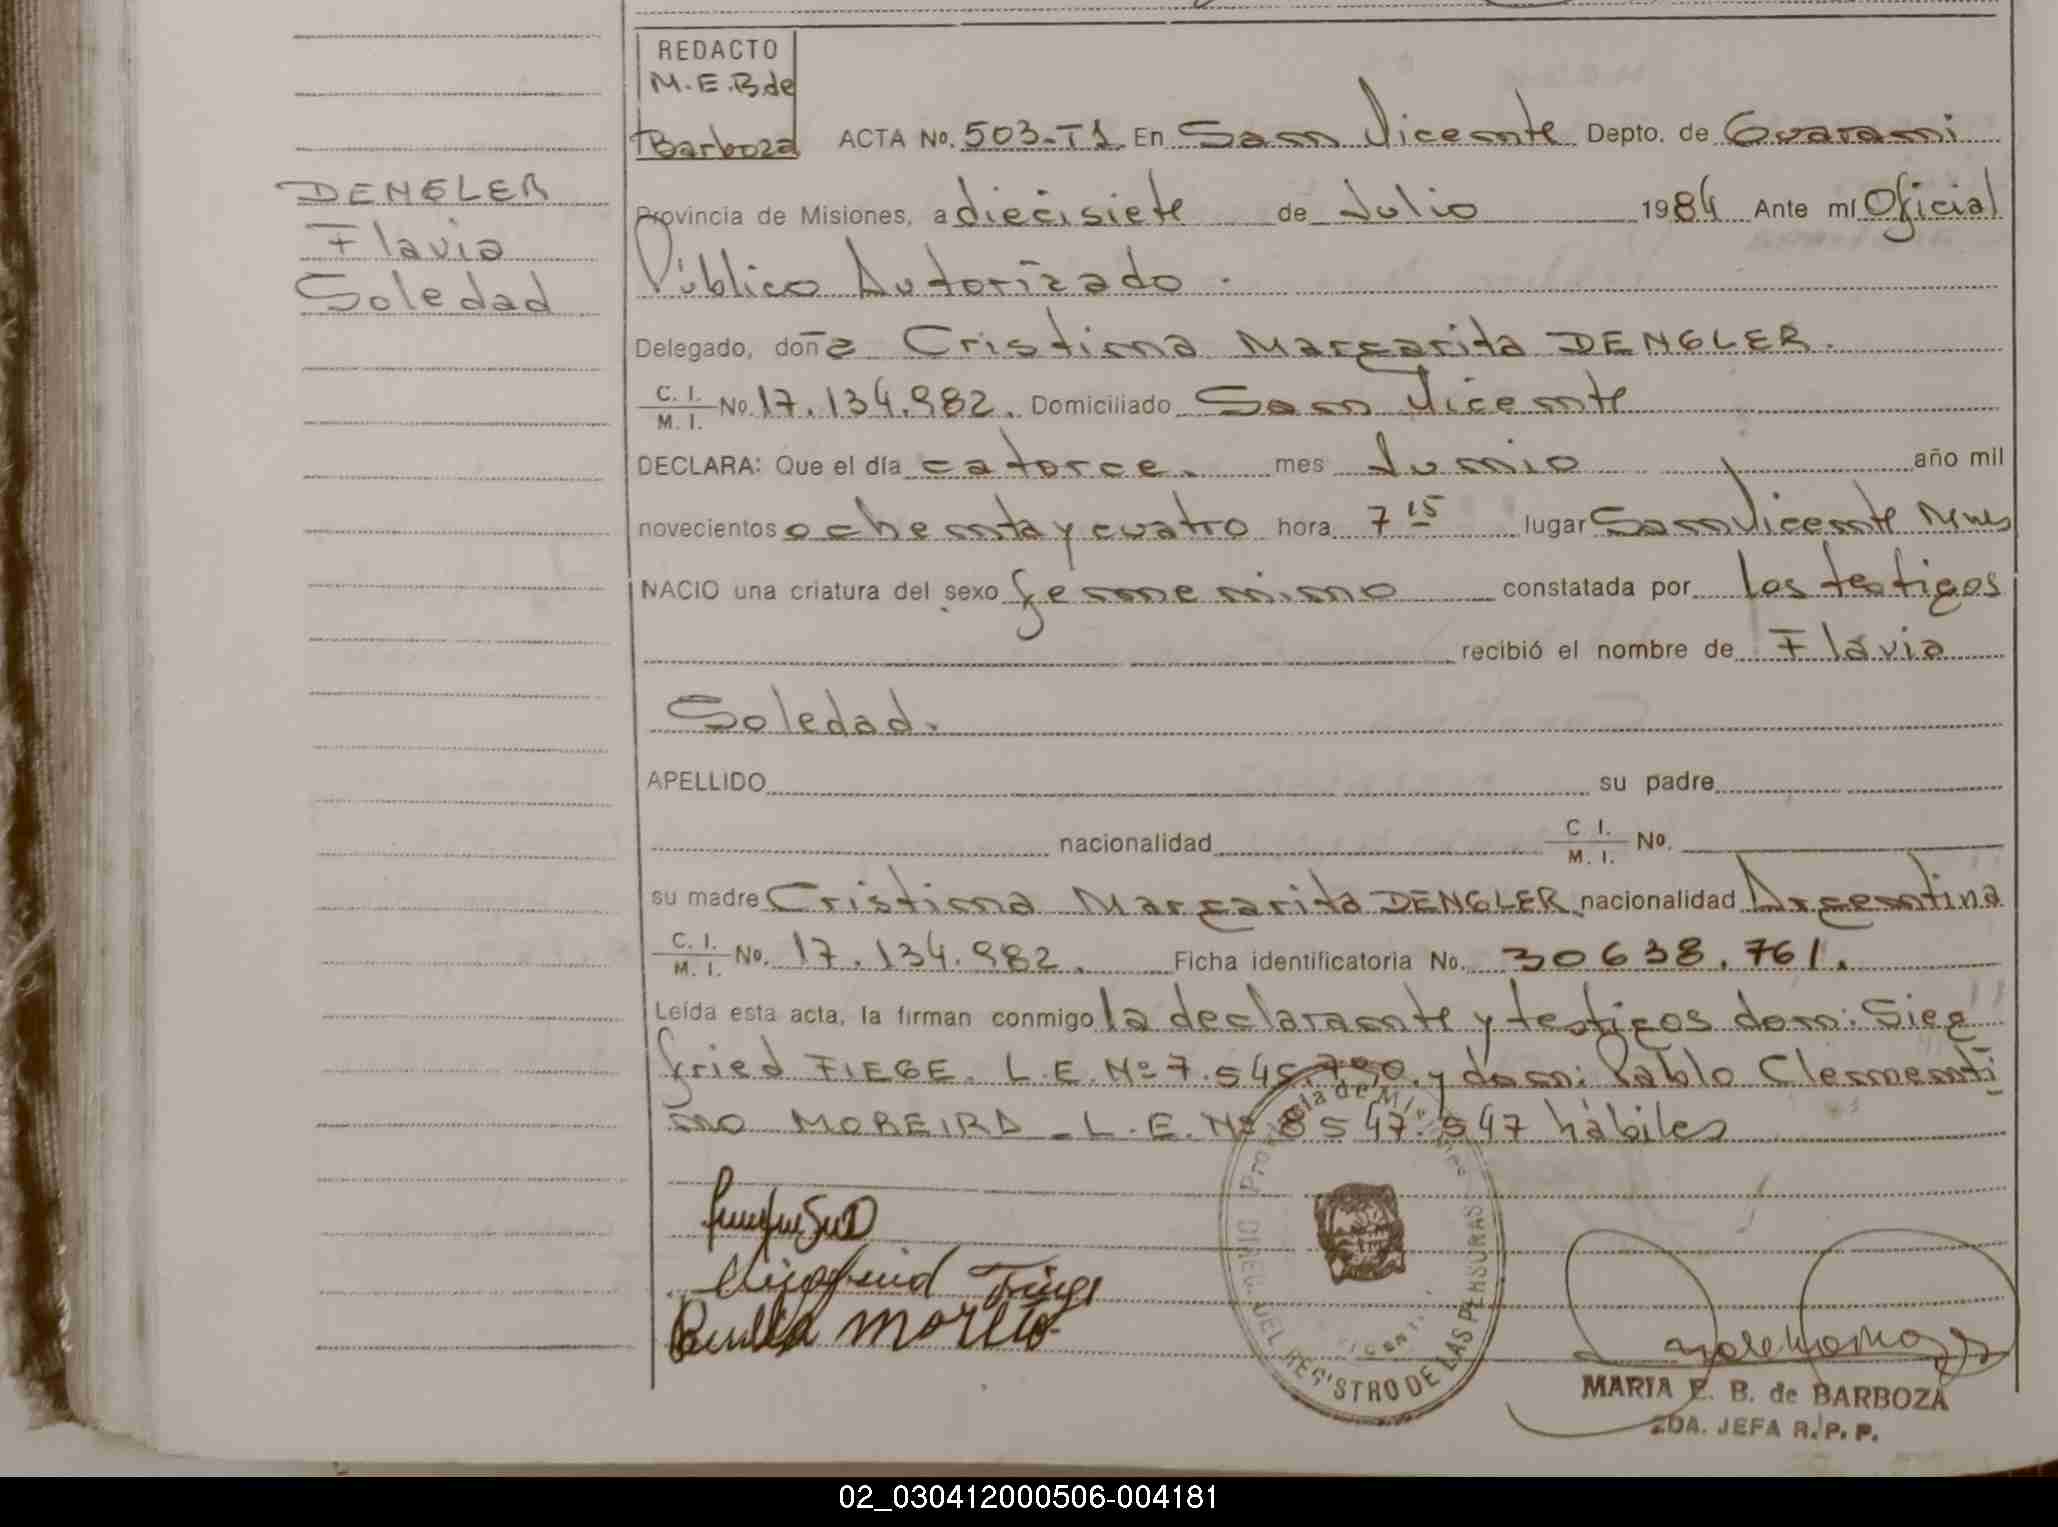 REDACTO
M.E.B.de
Barboza
ACTA No. 503-T1 En San Vicente Depto. de Guarani
DENGLER
Flavia
Soledad
Provincia de Misiones, a diecisiete de Julio 1984 Ante mí Oficial
Público Autorizado.
Delegado, doña Cristina Margarita DENGLER.
C. I.
M. I. No. 17.134.982. Domiciliado San Vicente
DECLARA: Que el día catorce. mes Junio año mil
novecientos ochenta y cuatro hora 7 15 lugar San Vicente Mnes
NACIO una criatura del sexo femenino constatada por los testigos
recibió el nombre de Flavia
Soledad.
APELLIDO su padre
nacionalidad C I.
M. I. No.
su madre Cristina Margarita DENGLER nacionalidad Argentina
C. I.
M. I. No. 17.134.982. Ficha identificatoria No. 30638.761.
Leída esta acta, la firman conmigo la declarante y testigos don: Sieg
fried FIEGE. L.E. Nº 7.545. y don: Pablo Clementi
no MOREIRA - L.E. Nº 8547.547 hábiles
Provincia de Misiones
DIREC. DEL REGISTRO DE LAS PERSONAS
MARIA E. B. de BARBOZA
2DA. JEFA R.P.P.
02_030412000506-004181